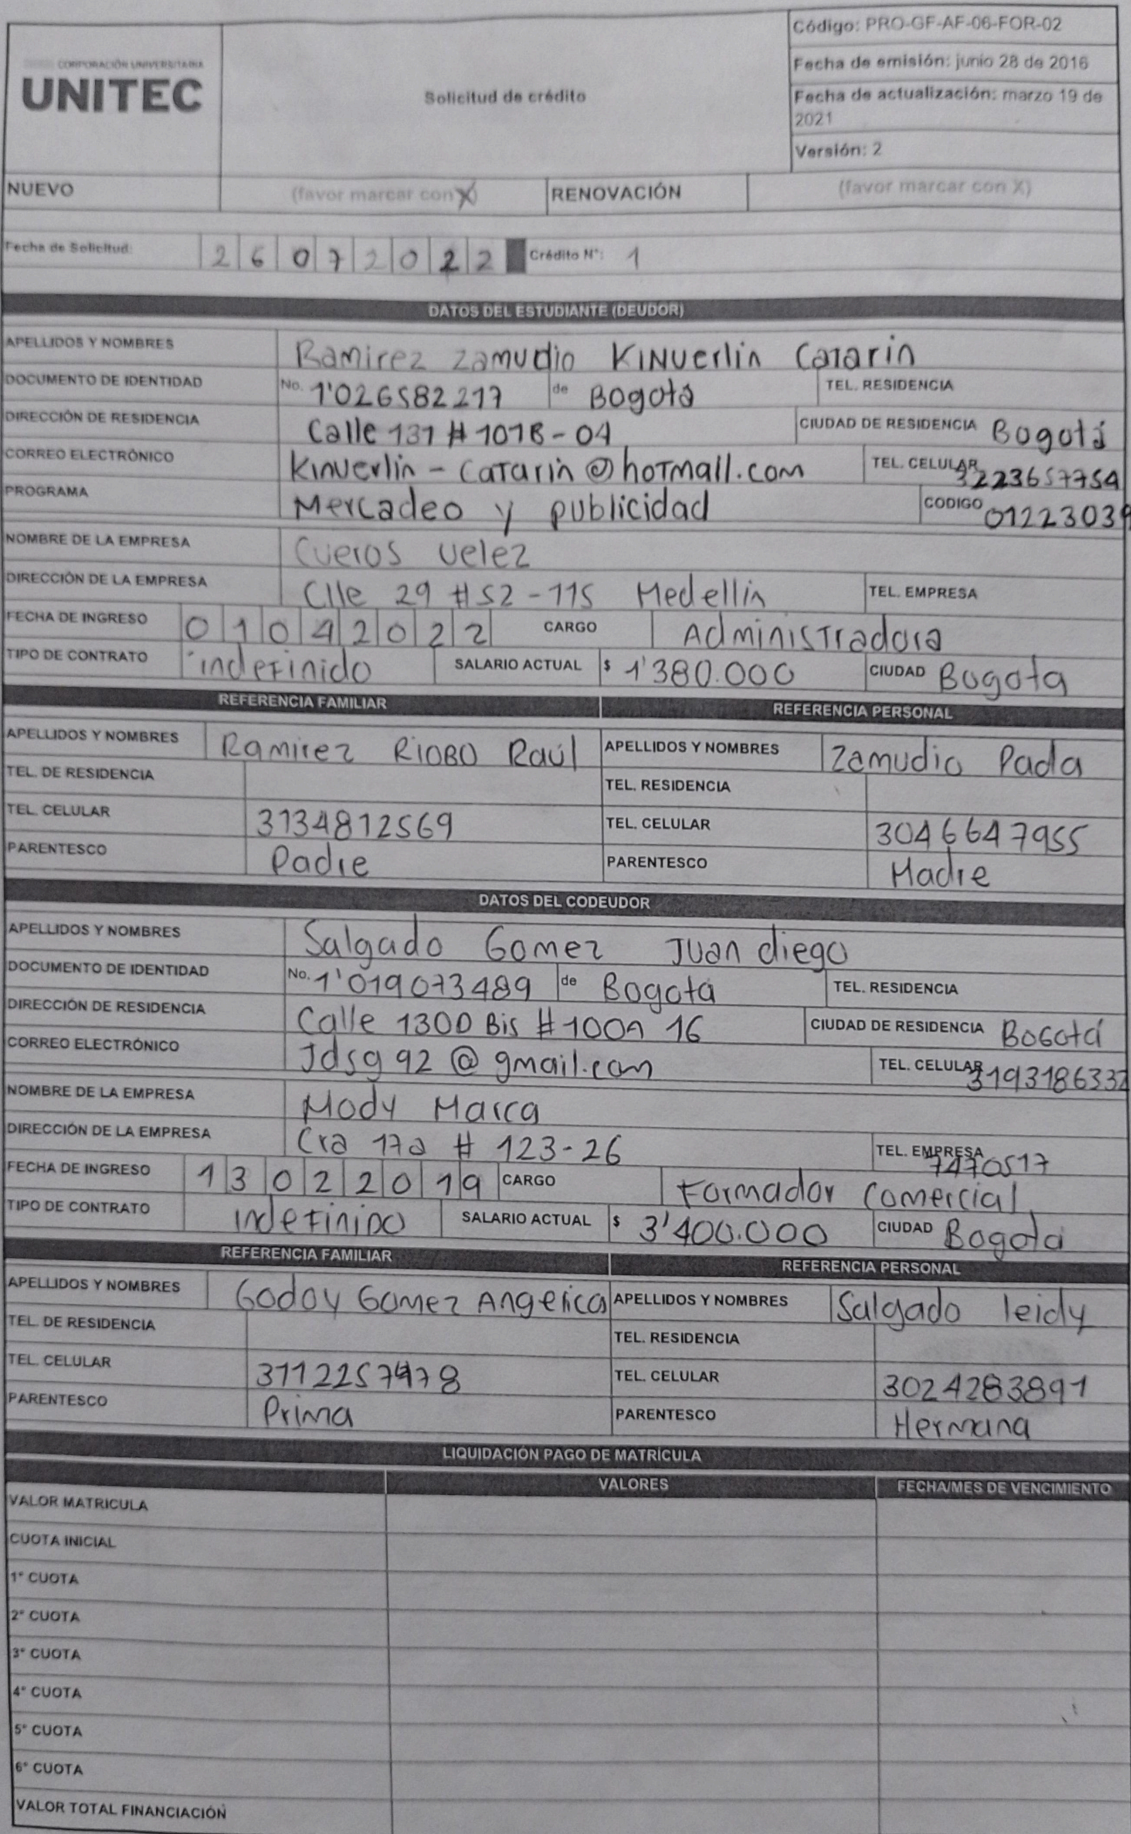 CORPORACIÓN UNIVERSITARIA
UNITEC
Solicitud de crédito
Código: PRO-GF-AF-06-FOR-02
Fecha de emisión: junio 28 de 2016
Fecha de actualización: marzo 19 de
2021
Versión: 2
NUEVO (favor marcar con X) RENOVACIÓN (favor marcar con X)
Fecha de Solicitud: 26072022 Crédito N°: 1
DATOS DEL ESTUDIANTE (DEUDOR)
APELLIDOS Y NOMBRES Ramirez Zamudio Kinverlin Catarin
DOCUMENTO DE IDENTIDAD No. 1'026582217 de Bogotá TEL. RESIDENCIA
DIRECCIÓN DE RESIDENCIA Calle 131 # 101B-04 CIUDAD DE RESIDENCIA Bogotá
CORREO ELECTRÓNICO Kinverlin-Catarin@hotmail.com TEL. CELULAR 3223657754
PROGRAMA Mercadeo y publicidad CODIGO 01223039
NOMBRE DE LA EMPRESA Cueros velez
DIRECCIÓN DE LA EMPRESA Clle 29 #52-115 Medellin TEL. EMPRESA
FECHA DE INGRESO 01042022 CARGO Administradora
TIPO DE CONTRATO indefinido SALARIO ACTUAL $ 1'380.000 CIUDAD Bogota
REFERENCIA FAMILIAR REFERENCIA PERSONAL
APELLIDOS Y NOMBRES Ramirez RIOBO Raúl APELLIDOS Y NOMBRES Zamudio
TEL. DE RESIDENCIA TEL. RESIDENCIA
TEL. CELULAR 3134812569 TEL. CELULAR 3046647955
PARENTESCO Padre PARENTESCO Madre
DATOS DEL CODEUDOR
APELLIDOS Y NOMBRES Salgado Gomez Juan diego
DOCUMENTO DE IDENTIDAD No. 1'019073489 de Bogotá TEL. RESIDENCIA
DIRECCIÓN DE RESIDENCIA Calle 130D Bis #100A 16 CIUDAD DE RESIDENCIA Bogotá
CORREO ELECTRÓNICO Jdsg92@gmail.com TEL. CELULAR 3193186332
NOMBRE DE LA EMPRESA Mody Marca
DIRECCIÓN DE LA EMPRESA Cra 17a # 123-26 TEL. EMPRESA 7470517
FECHA DE INGRESO 13022019 CARGO Formador Comercial
TIPO DE CONTRATO indefinido SALARIO ACTUAL $ 3'400.000 CIUDAD Bogota
REFERENCIA FAMILIAR REFERENCIA PERSONAL
APELLIDOS Y NOMBRES Godoy Gomez Angelica APELLIDOS Y NOMBRES Salgado leidy
TEL. DE RESIDENCIA TEL. RESIDENCIA
TEL. CELULAR 3112257478 TEL. CELULAR 3024283891
PARENTESCO Prima PARENTESCO Hermana
LIQUIDACIÓN PAGO DE MATRÍCULA
VALORES FECHA/MES DE VENCIMIENTO
VALOR MATRICULA
CUOTA INICIAL
1° CUOTA
2° CUOTA
3° CUOTA
4° CUOTA
5° CUOTA
6° CUOTA
VALOR TOTAL FINANCIACIÓN